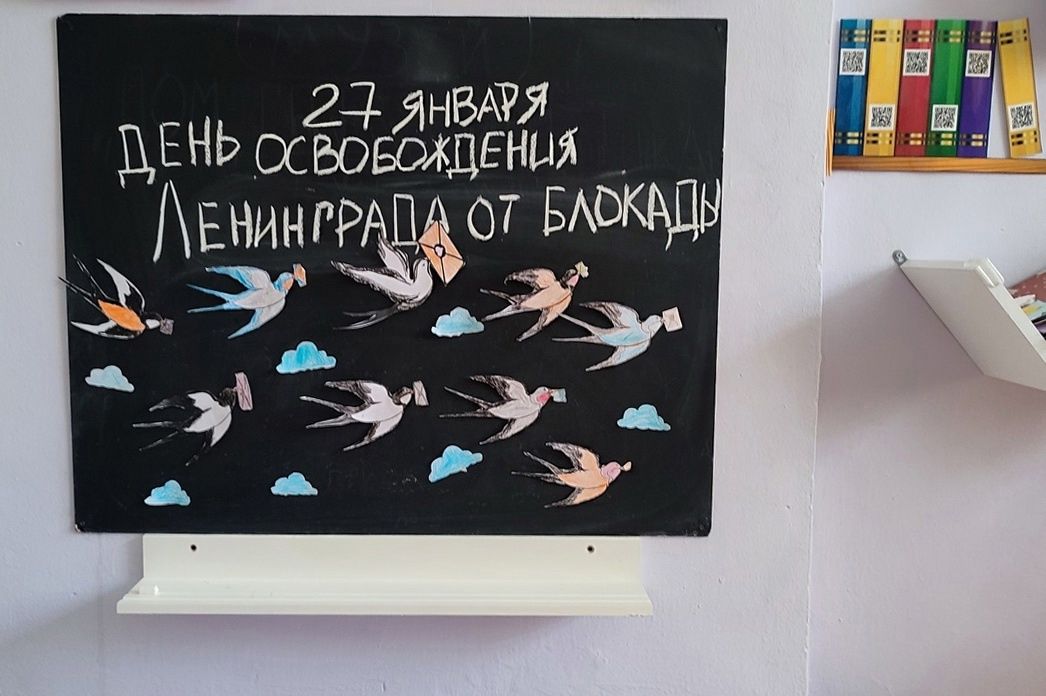 27 ЯНВАРЯ
ДЕНЬ ОСВОБОЖДЕНИЯ
ЛЕНИНГРАДА ОТ БЛОКАДЫ